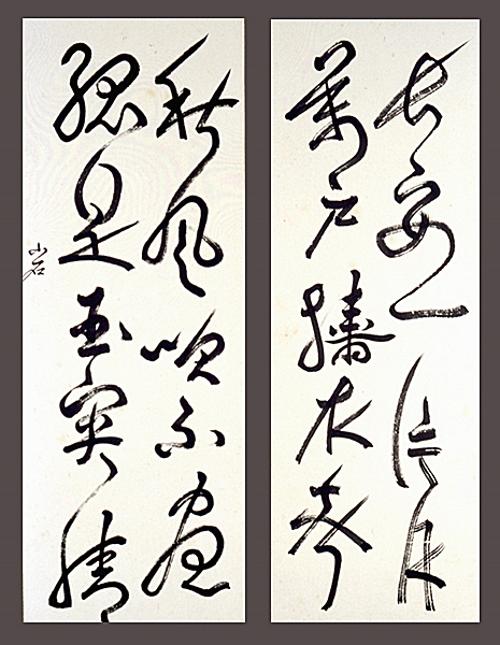 長安一片月
萬戶擣衣聲
秋風吹不盡
總是玉關情